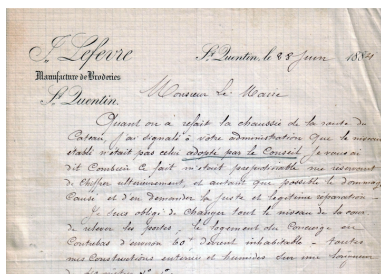 J. Lefevre
Manufacture de Broderies
St. Quentin.
St. Quentin, le 28 Juin 1884
Monsieur Le Maire
Quant on a refait la chaussée de la route du
Cateau, j'ai signalé à votre administration que le niveau
établi n'était pas celui adopté par le Conseil, je vous ai
dit Combien ce fait m'était préjudiciable me réservant
de Chiffrer ultérieurement, et autant que possible le dommage
Causé et d'en demander la juste et légitime réparation
Je suis obligé de Changer tout le niveau de la cour
de relever les portes, le logement du Concierge en
Contrebas d'environ 60c devient inhabitable - toutes
mes Constructions enterrées et humides sur une